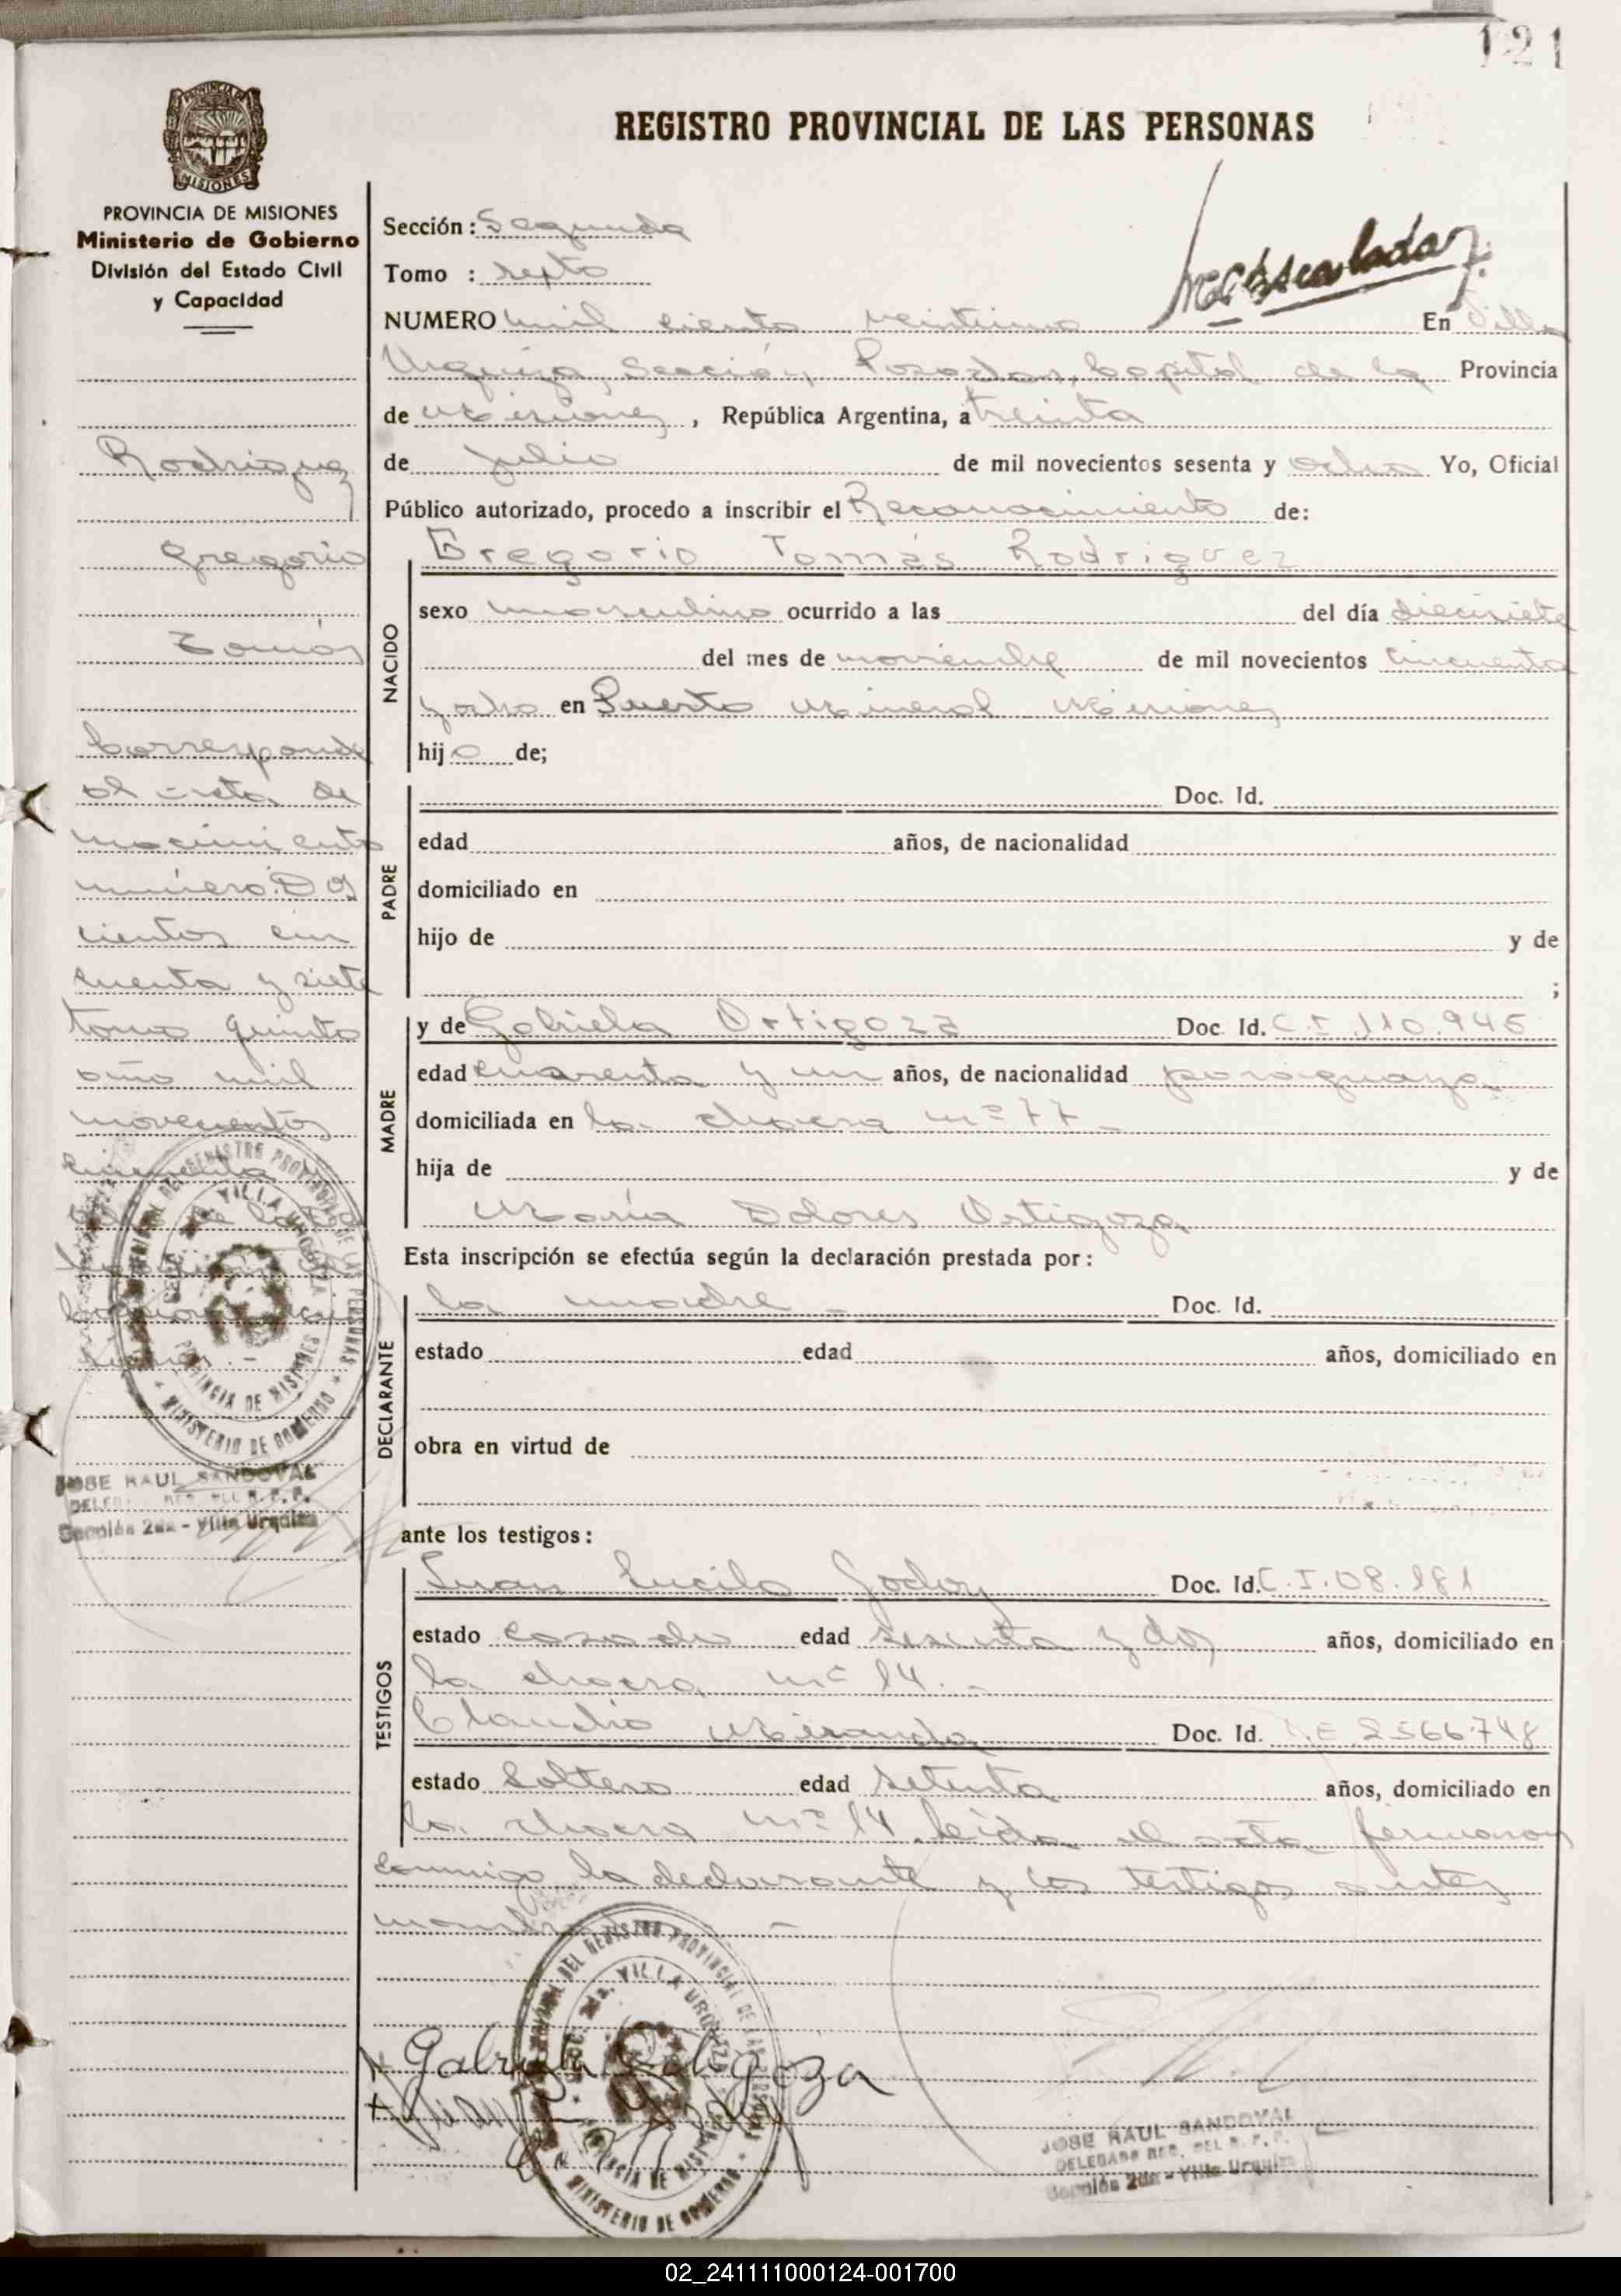 121
REGISTRO PROVINCIAL DE LAS PERSONAS
PROVINCIA DE MISIONES
Ministerio de Gobierno
División del Estado Civil
y Capacidad
Rodriguez
Gregorio
Tomás
Corresponde
al acta de
nacimiento
número: Dos
cientos cin
cuenta y siete
tomo quinto
año mil
novecientos
cincuenta
JOSE RAUL SANDOVAL
Sección 2da - Villa Urquiza
Sección: Segunda
Tomo : septo
NUMERO mil ciento veintiuno En Villa
Urquiza, Sección, Posadas, Capital de la Provincia
de Misiones, República Argentina, a treinta
de Julio de mil novecientos sesenta y ocho Yo, Oficial
Público autorizado, procedo a inscribir el Reconocimiento de:
NACIDO
Gregorio Tomás Rodriguez
sexo masculino ocurrido a las del día diecisiete
del mes de noviembre de mil novecientos cincuenta
y ocho en Puerto Mineral Misiones
hijo de;
PADRE
Doc. Id.
edad años, de nacionalidad
domiciliado en
hijo de y de
;
MADRE
y de Gabriela Ortigoza Doc. Id. C.I. 110.945
edad cuarenta y un años, de nacionalidad paraguaya
domiciliada en la chacra nº 77 -
hija de y de
María Dolores Ortigoza
Esta inscripción se efectúa según la declaración prestada por:
DECLARANTE
la madre - Doc. Id.
estado edad años, domiciliado en
obra en virtud de
ante los testigos:
TESTIGOS
Juan Lucilo Godoy Doc. Id. C.I. 08.181
estado casado edad sesenta y dos años, domiciliado en
la chacra nº 14. -
Claudio Miranda Doc. Id. 2566.748
estado Soltero edad setenta años, domiciliado en
la chacra nº 14 leida el acta firmaron
conmigo la declarante y los testigos antes
Gabriela Ortigoza
VILLA URQUIZA
PROVINCIA DE MISIONES
MINISTERIO DE GOBIERNO
JOSE RAUL SANDOVAL
DELEGADO
Sección 2da - Villa Urquiza
02_241111000124-001700